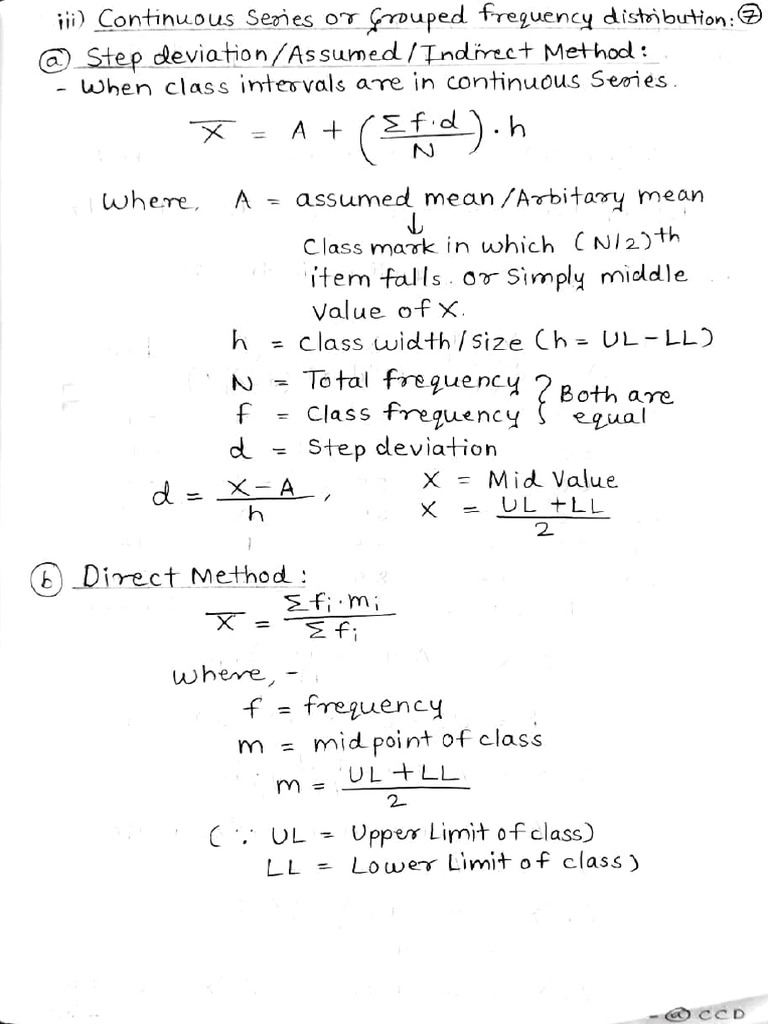 iii) Continuous Series or Grouped frequency distribution: ⑦
ⓐ Step deviation/Assumed/Indirect Method:
- When class intervals are in continuous Series.
X̄ = A + (Σf.d / N) . h
Where, A = assumed mean/Arbitary mean
↓
Class mark in which (N/2)th
item falls. or Simply middle
Value of X.
h = class width/size (h = UL-LL)
N = Total frequency } Both are
f = Class frequency } equal
d = Step deviation
d = (X-A)/h , X = Mid Value
X = (UL+LL)/2
ⓑ Direct Method:
X̄ = Σfi.mi / Σfi
where, -
f = frequency
m = midpoint of class
m = (UL+LL)/2
(∵ UL = Upper Limit of class)
LL = Lower Limit of class)
- @CCD